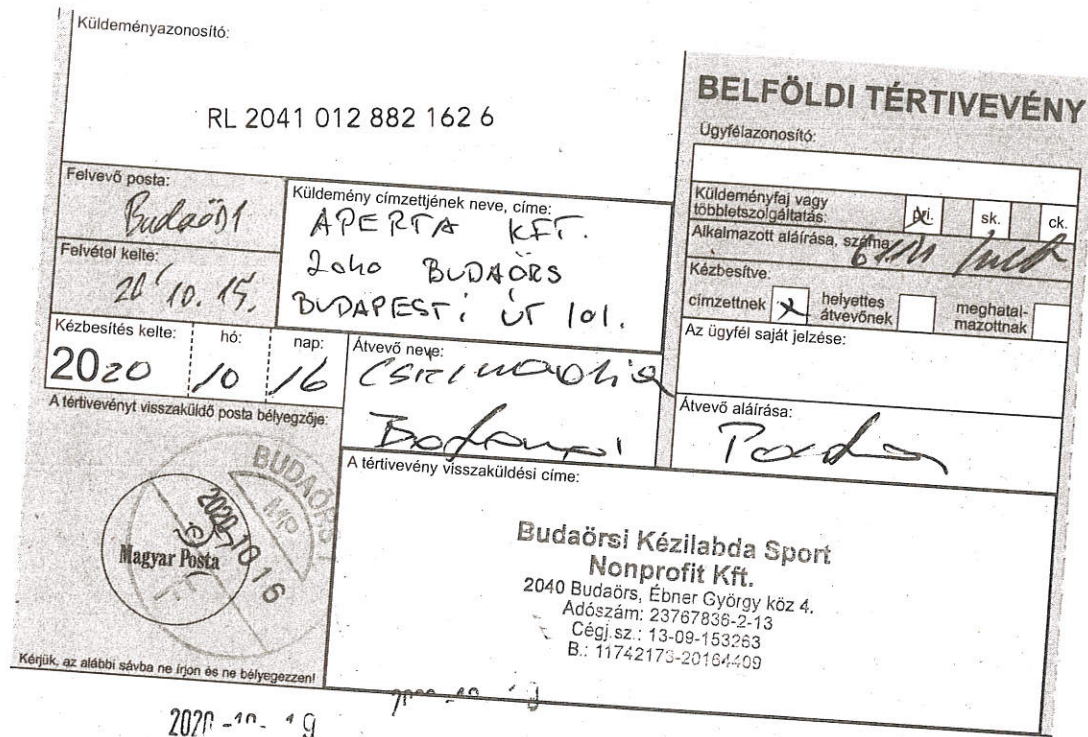 Küldeményazonosító:
RL 2041 012 882 162 6
BELFÖLDI TÉRTIVEVÉNY
Ügyfélazonosító:
Felvevő posta:
Budaörs
Felvétel kelte:
20' 10. 15.
Küldemény címzettjének neve, címe:
APERTA KFT.
2040 BUDAÖRS
BUDAPESTi ÚT 101.
Küldeményfaj vagy
többletszolgáltatás:
sk.
ck.
Alkalmazott aláírása, száma:
Kézbesítve:
címzettnek x
helyettes
átvevőnek
meghatal-
mazottnak
Kézbesítés kelte: hó: nap:
2020 10 16
Átvevő neve:
Csizmadia
Az ügyfél saját jelzése:
Átvevő aláírása:
A tértivevényt visszaküldő posta bélyegzője:
BUDAÖRS 1
MP
2020-10-16
Magyar Posta
A tértivevény visszaküldési címe:
Budaörsi Kézilabda Sport
Nonprofit Kft.
2040 Budaörs, Ébner György köz 4.
Adószám: 23767836-2-13
Cégj.sz.: 13-09-153263
B.: 11742173-20164409
Kérjük, az alábbi sávba ne írjon és ne bélyegezzen!
2020 -10- 19